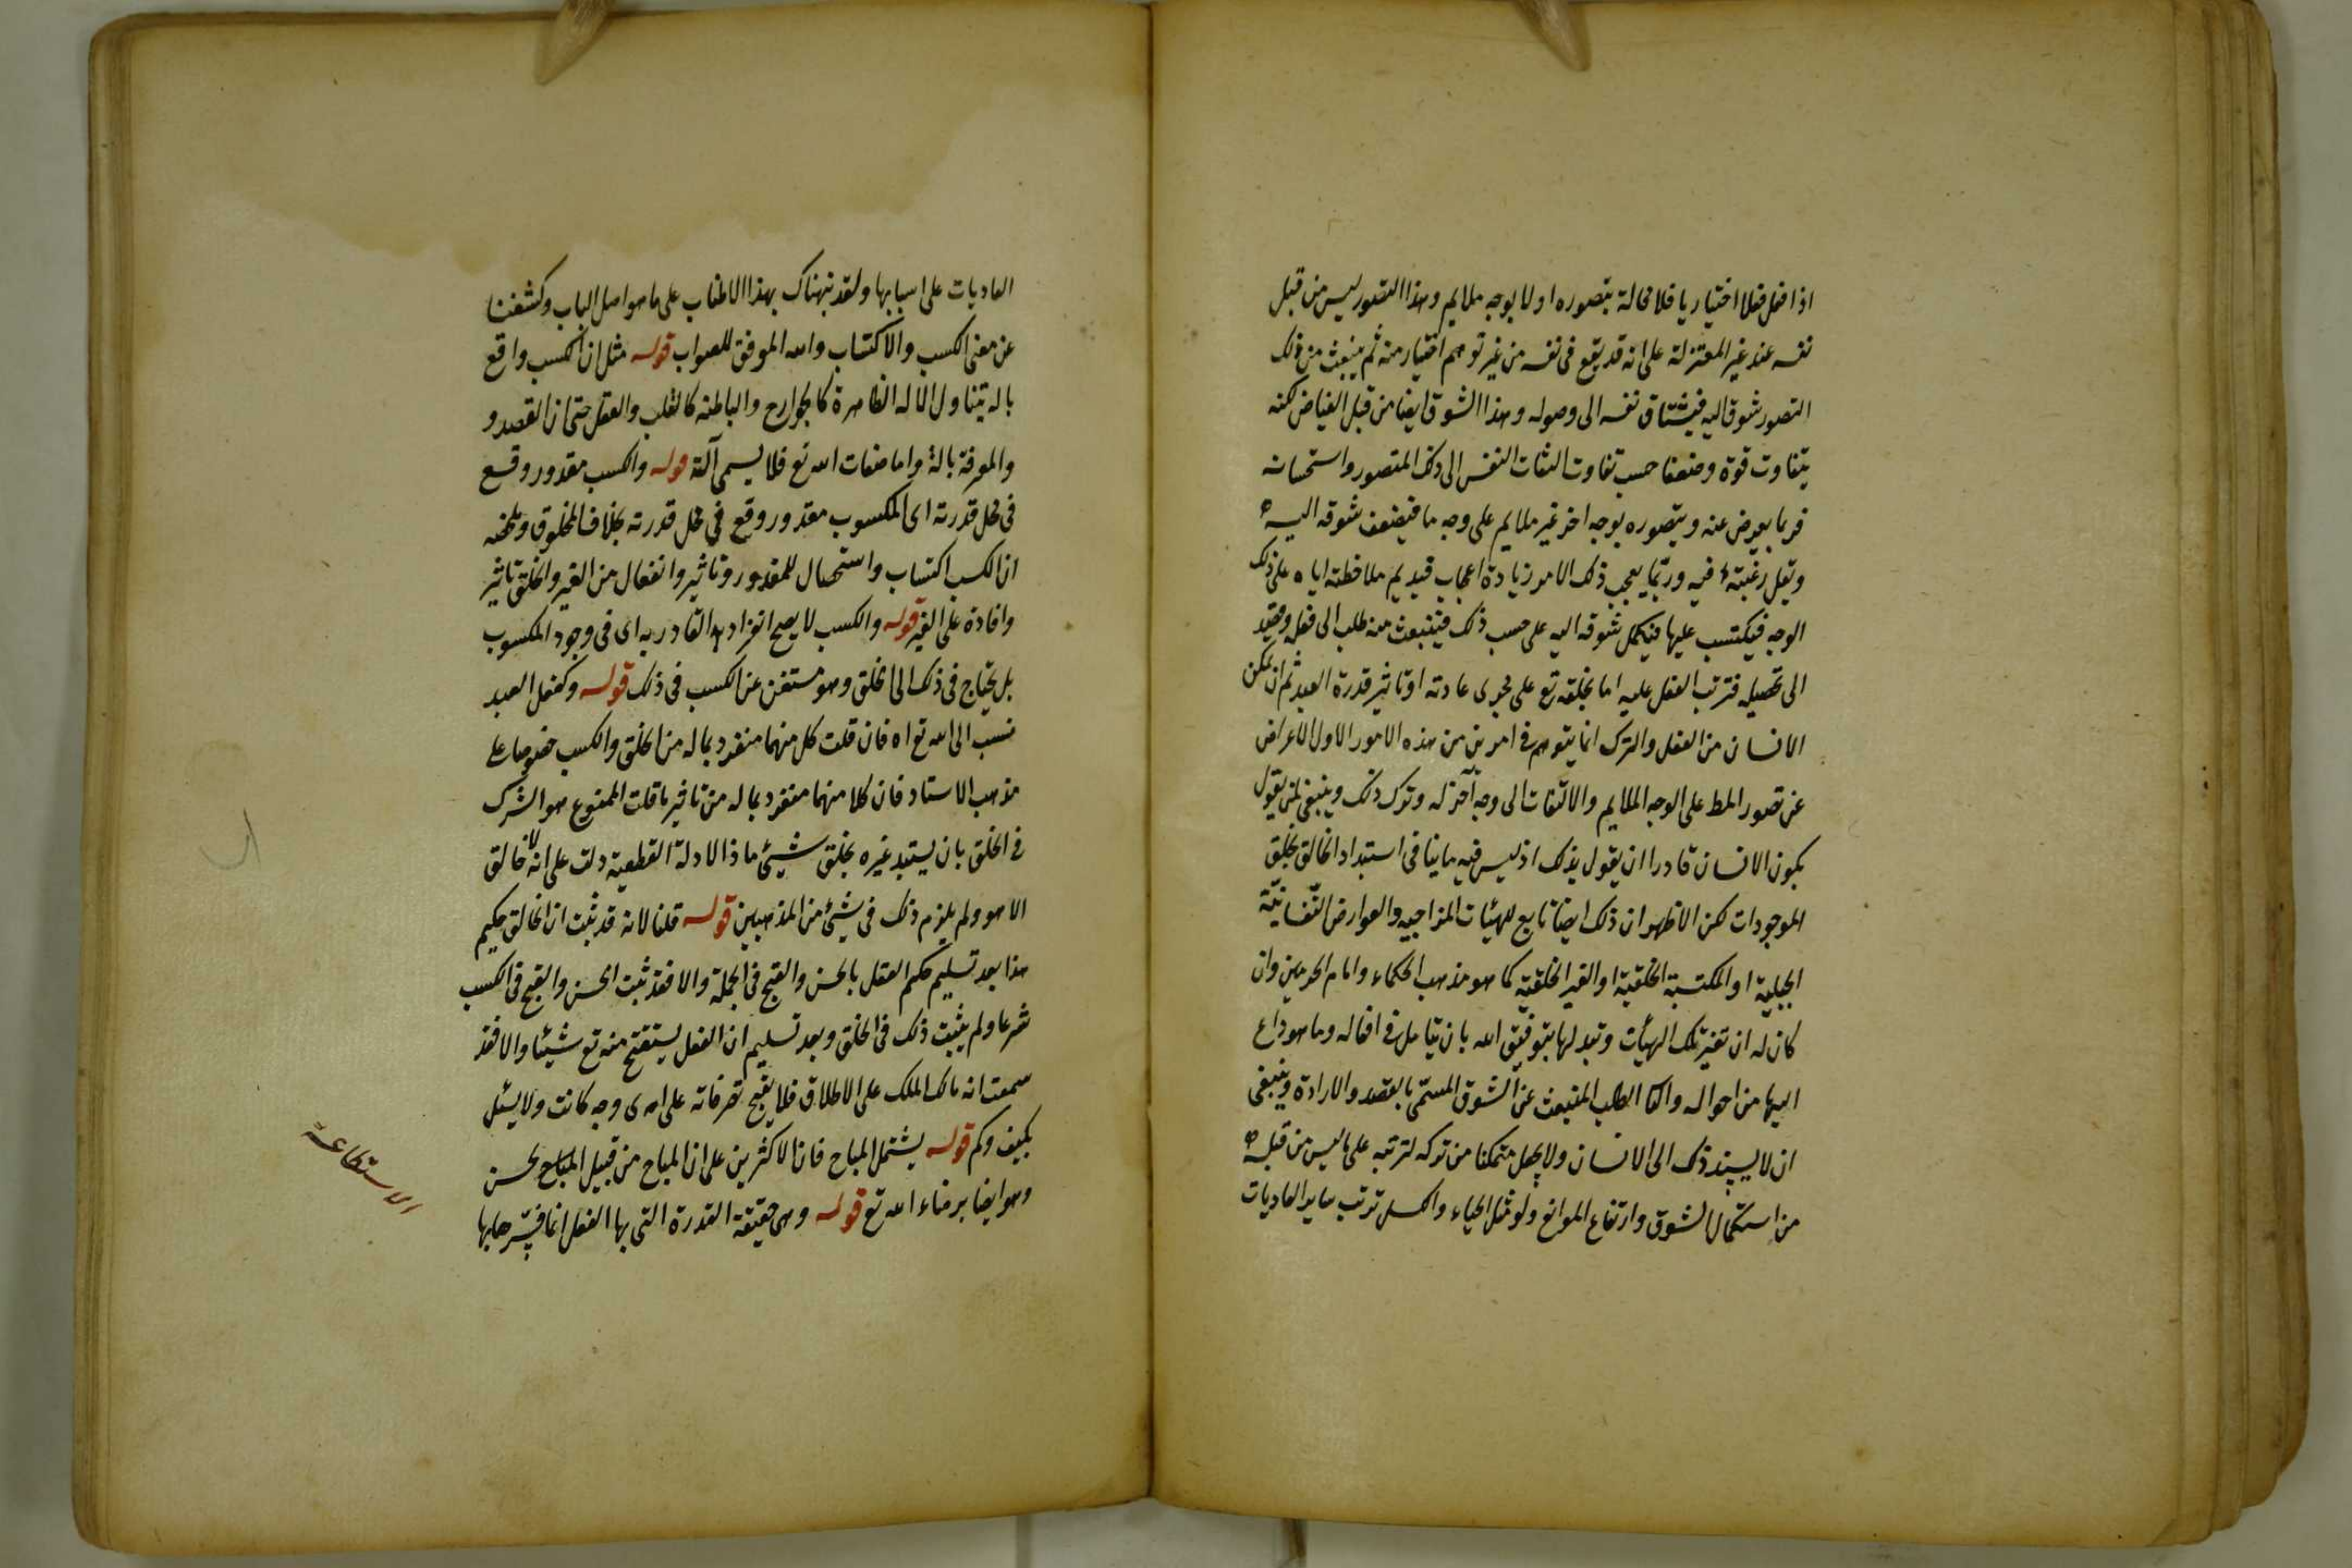 اذا فعل فعلا اختياريا فلا محالة يتصوره اولا بوجه ملايم وهذا التصور ليس من قبل
نفسه عند غير المعتزلة على انه قد يقع فى نفسه من غير توهم اختيار منه ثم ينبعث من ذلك
التصور شوق اليه فيشتاق نفسه الى وصوله وهذا الشوق ايضا من قبل الفياض لكنه
يتفاوت قوة وضعفا حسب تفاوت التفات النفس الى ذلك المتصور واستحسانه
فربما يعرض عنه ويتصوره بوجه اخر غير ملايم على وجه ما فيضعف شوقه اليه
وتقل رغبته فيه وربما يعجب ذلك الامر زيادة اعجاب فيديم ملاحظته اياه على ذلك
الوجه فيكتسب عليها فيكمل شوقه اليه على حسب ذلك فينبعث منه طلب الى فعله وقصد
الى تحصيله فترتب الفعل عليه اما بخلقه تع على مجرى عادته او تاثير قدرة العبد ثم ان تمكن
الانسان من الفعل والترك انما يتوهم فى امرين من هذه الامور الاول الاعراض
عن تصور المط على الوجه الملايم والالتفات الى وجه آخر له وترك ذلك وينبغى لمن يقول
بكون الانسان قادرا ان يقول بذلك اذ ليس فيه ما ينافى استبداد الخالق بخلق
الموجودات لكن الاظهر ان ذلك ايضا تابع للهيئات المزاجيه والعوارض النفسانية
الجبلية او المكتسبة الخلقية او الغير الخلقية كما هو مذهب الحكماء وامام الحرمين وان
كان له ان تغير تلك الهيئات وتبدلها بتوفيق الله بان يتامل فى افعاله وما هو داع
اليها من احواله والثا الطلب المنبعث عن الشوق المسمى بالقصد والارادة وينبغى
ان لا يسند ذلك الى الانسان ولا يجعل متمكنا من تركه لترتبه على ما ليس من قبله
من استكمال الشوق وارتفاع الموانع ولو مثل الحياء والكسل ترتب ساير العاديات
العاديات على اسبابها ولقد نبهناك بهذا الاطناب على ما هو اصل الباب وكشفنا
عن معنى الكسب والاكتساب والله الموفق للصواب قوله مثل ان الكسب واقع
بالة يتناول الالة الظاهرة كالجوارح والباطنه كالقلب والعقل حتى ان القصد و
والمعرفة بالة واما صفات الله تع فلا يسمى آلة قوله والكسب مقدور وقع
فى محل قدرته اى المكسوب مقدور وقع فى محل قدرته بخلاف المخلوق وملخصه
ان الكسب اكتساب واستحصال للمقدور وتاثير وانفعال من الغير والخلق تاثير
وافادة على الغير قوله والكسب لا يصح انفراد القادر به اى فى وجود المكسوب
بل يحتاج فى ذلك الى الخلق وهو مستغن عن الكسب فى ذلك قوله وكفعل العبد
نسب الى الله تع اه فان قلت كل منهما منفرد بما له من الخلق والكسب خصوصا على
مذهب الاستاد فان كلا منهما منفرد بما له من تاثير ما قلت الممنوع هو الشرك
فى الخلق بان يستبد غيره بخلق شيئ ما اذ الادلة القطعية دلت على انه لا خالق
الا هو ولم يلزم ذلك فى شيئ من المذهبين قوله قلنا لانه قد ثبت ان الخالق حكيم
هذا بعد تسليم حكم العقل بالحسن والقبح فى الجملة والا فقد ثبت الحسن والقبح فى الكسب
شرعا ولم يثبت ذلك فى الخلق وبعد تسليم ان الفعل يستقبح منه تع شيئا والا فقد
سمعت انه مالك الملك على الاطلاق فلا يقبح تصرفاته على اى وجه كانت ولا يسئل
بكيف وكم قوله يشتمل المباح فان الاكثرين على ان المباح من قبيل الحسن
وهو ايضا برضاء الله تع قوله وهى حقيقة القدرة التى بها الفعل انما فسرها بها
الاستطاعة